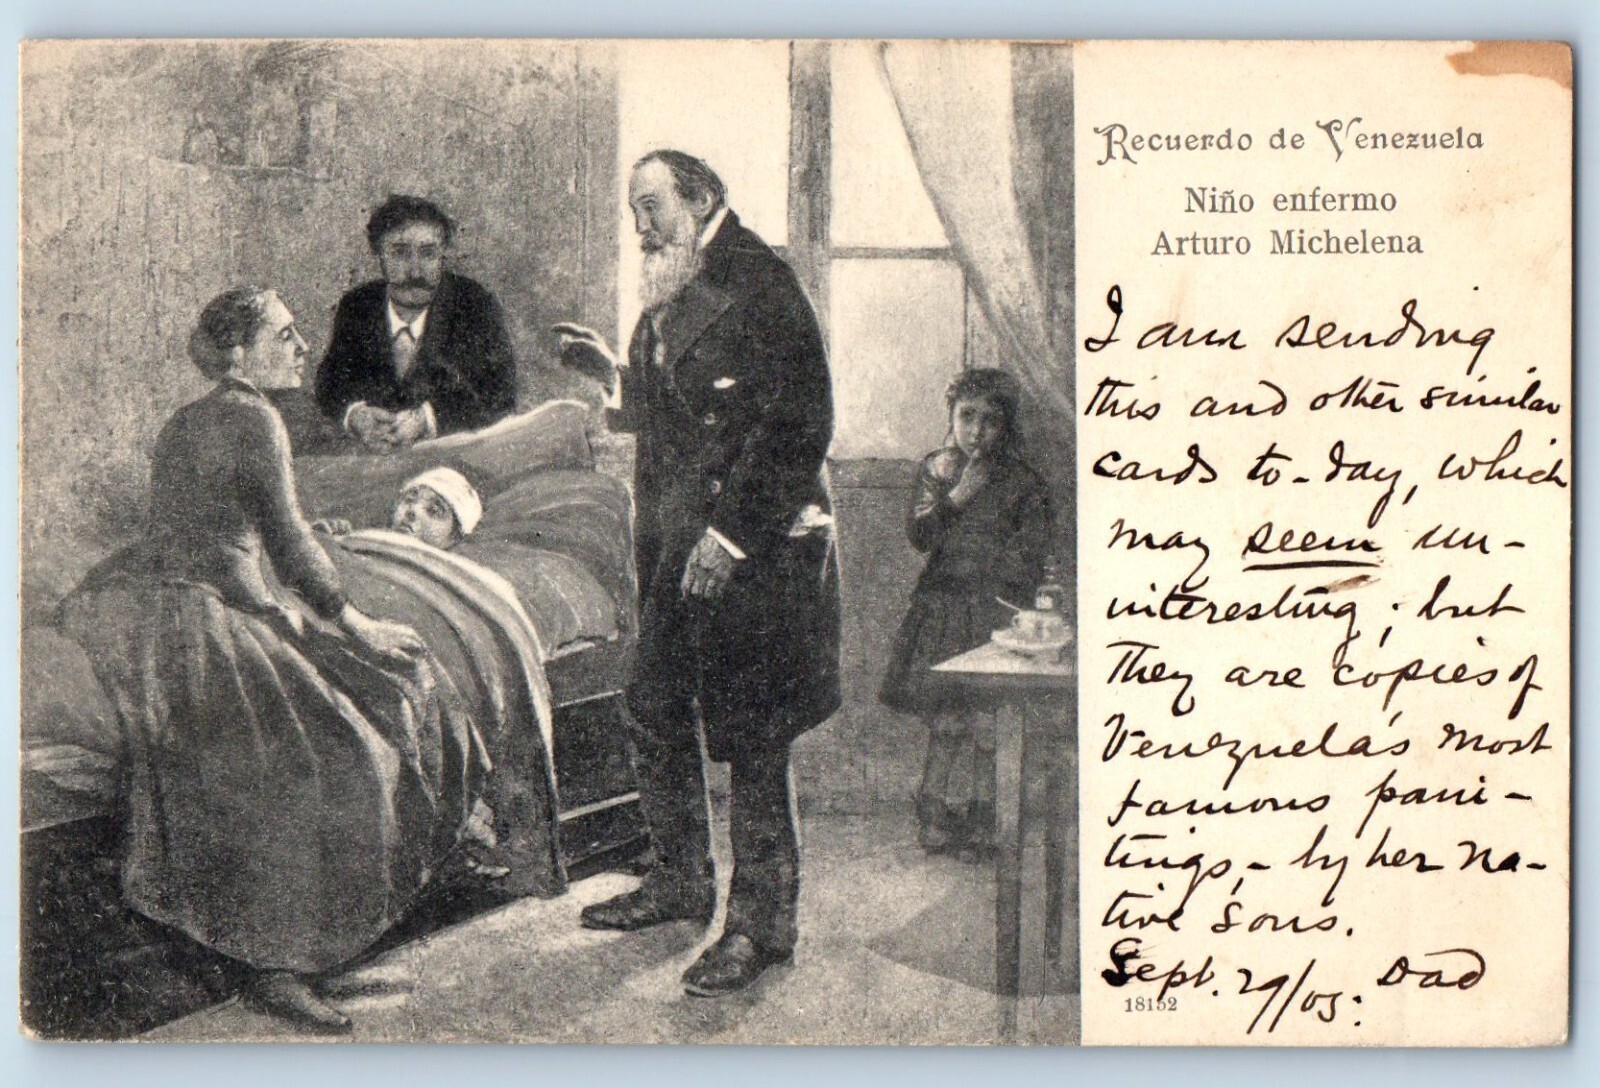 Recuerdo de Venezuela
Niño enfermo
Arturo Michelena
I am sending
this and other similar
cards to-day, which
may seem un-
interesting; but
they are copies of
Venezuela's most
famous pain-
tings, - by her na-
tive sons.
Sept. 29/05. Dad
18152